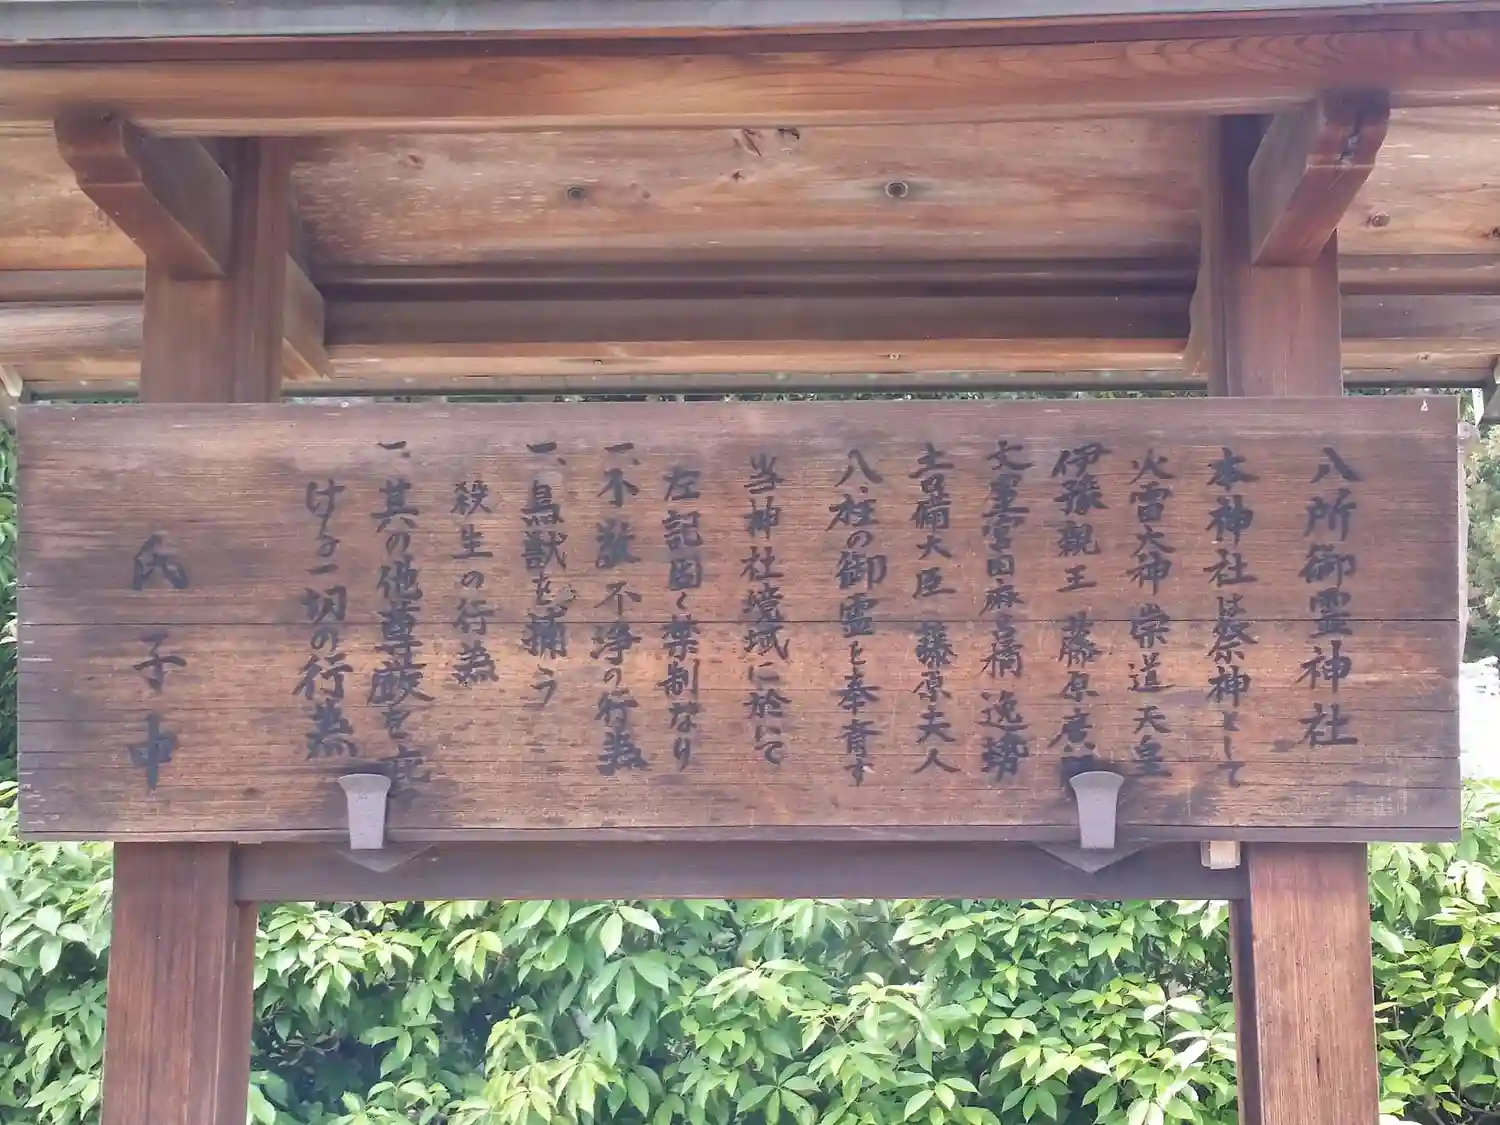 八所御霊神社
本神社は祭神として
火雷大神 崇道天皇
伊豫親王 藤原広
文室宮田麻呂 橘逸勢
吉備大臣 藤原夫人
八柱の御霊を奉斎す
当神社境域に於いて
左記固く禁制なり
一、不敬不浄の行為
一、鳥獣を捕う
殺生の行為
一、其の他尊厳を
ける一切の行為
氏子中